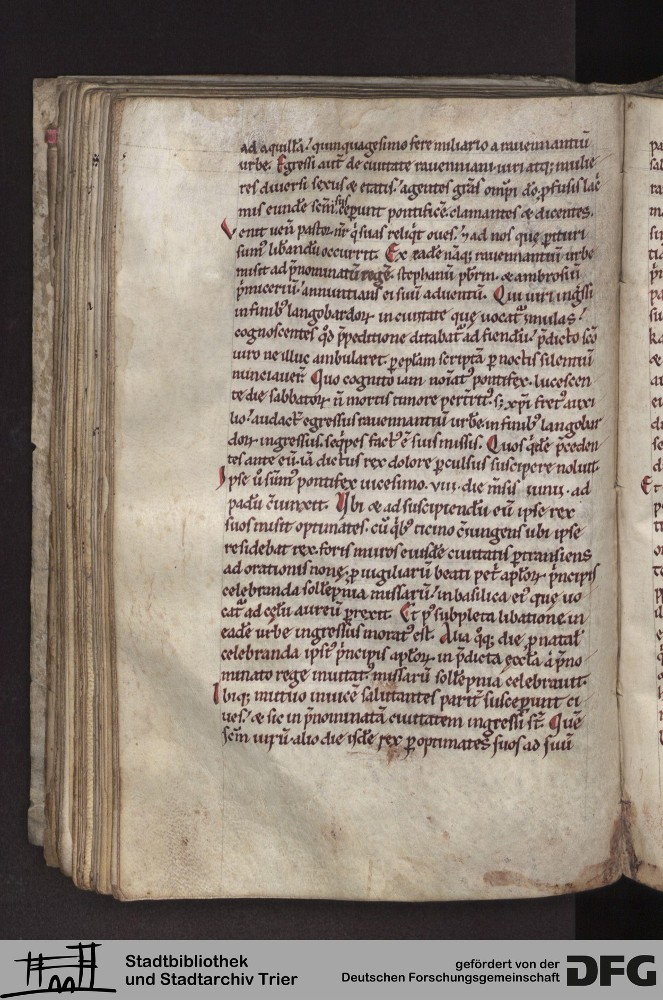 ad aquillã. quinquagesimo fere miliario a rauennantiũ
urbe. Egressi aut̃ de ciuitate rauenniani uiri atq; mulie
res diuersi sexus & etatis. agentes gr̃as om̃pi dõ. ꝓfusis lac
mis eundẽ sc̃m ceperunt pontificẽ clamantes & dicentes.
Venit uerũ pastor nr̃ q̇ suas reliq̇t oues. & ad nos que ꝑituri
sumꝰ liberandũ occurrit. Ex eadẽ nãq; rauennantiũ urbe
misit ad p̃nominatũ regẽ. stephanũ pb̃rm. & ambrosiũ
p̃miceriũ. annuntians ei suũ aduentũ. Qui uiri ing̃ssi
in finibꝰ langobardoꝝ in ciuitate que uocat̃ imulas.
cognoscentes qd̃ p̃peditione ditabat̃ ad fiendũ. p̃dicto sc̃o
uiro ne illuc ambularet. ꝑ eplam scriptã ꝑ noctis silentiũ
nunciauer̃. Quo cognito iam noĩatꝰ pontifex. lucescen
te die sabbatoꝝ. ñ mortis timore ꝑt̃ritꝰ. s; xp̃i fretꝰ auxi
lio. audact̃ egressus rauennantiũ urbẽ. in finibꝰ langobar
doꝝ ingressus. seq̃pes factꝰ ẽ suis missis. Quos q̇dẽ p̃ceden
tes ante eũ. iã dictus rex dolore ꝑculsus suscipere noluit.
Ipse ũ sum̃ꝰ pontifex uicesimo. viii. die m̃sis iunii. ad
padũ c̃iunxit. Ubi & ad suscipiendũ eũ ipse rex
suos misit optimates. cũ qͥbꝰ ticino c̃iungens ubi ipse
residebat rex. foris muros eiusdẽ ciuitatis ꝑtransiens
ad orationis nonę. ꝓ uigiliarũ beati pet̃ aploꝝ p̃ncipis
celebranda sollẽpnia missarũ. in basilica eiꝰ que uo
cat̃ ad celũ aureũ ꝑrexit. Et pꝰ subpleta libatione. in
eadẽ urbe ingressus moratꝰ est. Alia q̊q; die. ꝓ natal̃
celebranda ipsiꝰ p̃ncipis aploꝝ in p̃dicta ecc̃la. a p̃no
minato rege inuitatꝰ. missarũ sollẽpnia celebrauit.
Ibiq; mutuo inuicẽ salutantes parit̃ susceperunt ci
ues. & sic in p̃nominatã ciuitatem ingressi st̃. Quẽ
sc̃m uirũ. alio die isdẽ rex ꝑ optimates suos ad suũ
Stadtbibliothek
und Stadtarchiv Trier
gefördert von der
Deutschen Forschungsgemeinschaft
DFG